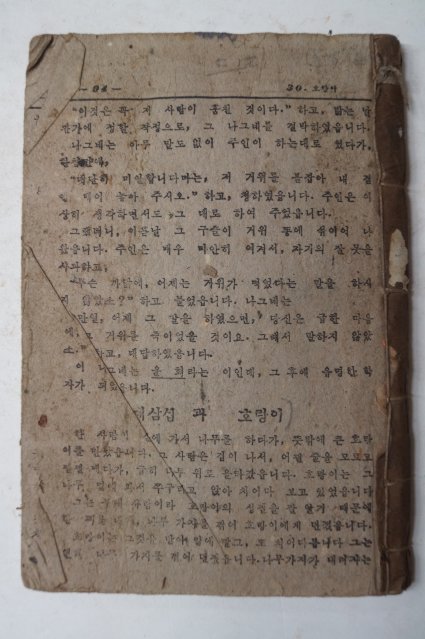 — 94 — 30. 호랑이
“이것은 꼭 저 사람이 훔친 것이다.” 하고, 밝는 날
관가에 정할 작정으로, 그 나그네를 결박하였읍니다.
나그네는 아무 말도 없이 주인이 하는대로 있다가,
“대단히 미안합니다마는, 저 거위를 붙잡아 내 곁
에 매어 놓아 주시오.” 하고, 청하였읍니다. 주인은 이
상히 생각하면서도 그 대로 하여 주었읍니다.
그랬더니, 이튿날 그 구슬이 거위 똥에 섞여 나
왔읍니다. 주인은 매우 미안히 여겨서, 자기의 잘 못을
사과하고,
“무슨 까닭에, 어제는 거위가 먹었다는 말을 하시
지 않았소?” 하고 물었읍니다. 나그네는
“만일, 어제 그 말을 하였으면, 당신은 급한 마음
에 그 거위를 죽이었을 것이요. 그래서 말하지 않았
소.” 하고, 대답하였읍니다.
이 나그네는 윤 회라는 이인데, 그 후에 유명한 학
자가 되었읍니다.
삼십 과 호랑이
한 사람이 산에 가서 나무를 하다가, 뜻밖에 큰 호랑
이를 만났읍니다. 그 사람은 겁이 나서, 어쩔 줄을 모르고
급히 나무 위로 올라갔읍니다. 호랑이는 그
나무 밑에 와서 쭈구리고 앉아 치어다 보고 있었읍니다
호랑이의 성질을 잘 알기 때문에
나무 가지를 꺾어 호랑이에게 던졌읍니다.
호랑이는 그것을 받아 또 치어다봅니다 그는
가지를 꺾어 던졌읍니다. 나무가지가 내려지는